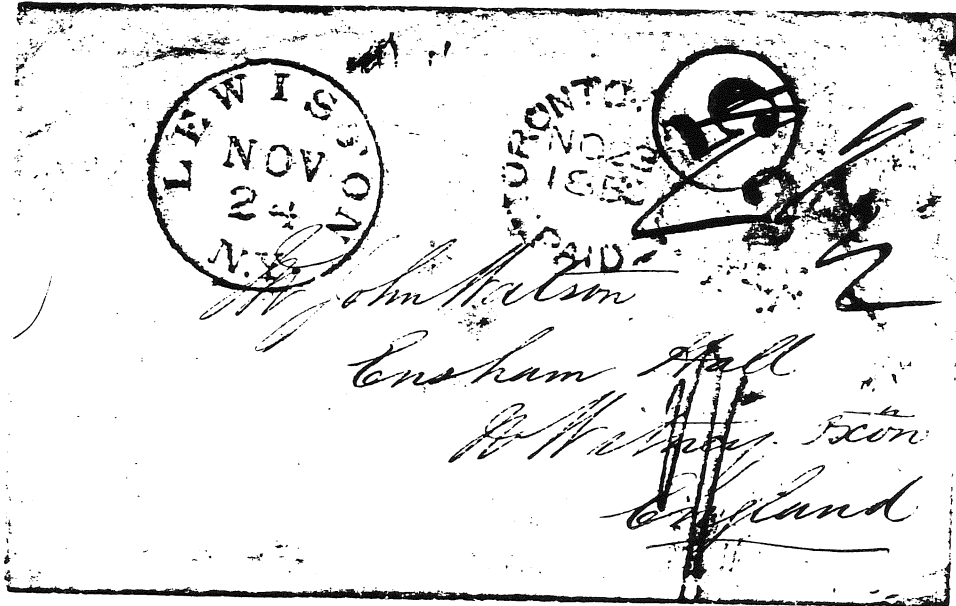 LEWISTON
NOV
24
N.Y.
TORONTO.
NO
185
PAID
24
Mr John Watson
Ensham Hall
Nr Witney Oxon
England